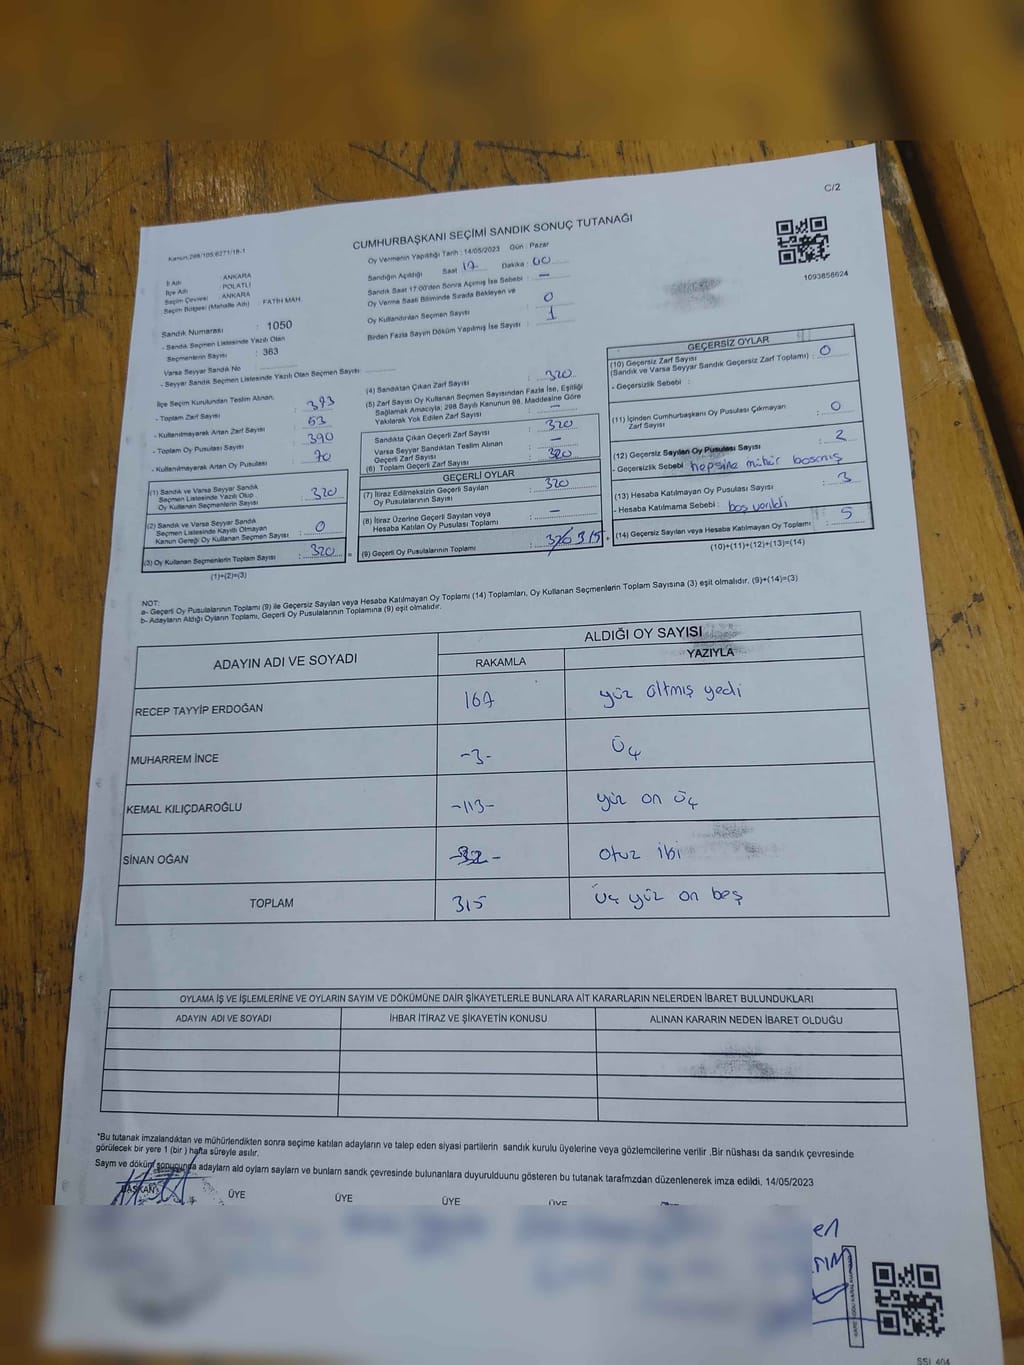 C/2
CUMHURBAŞKANI SEÇİMİ SANDIK SONUÇ TUTANAĞI
Kanun:298/105;6271/18-1
Oy Vermenin Yapıldığı Tarih : 14/05/2023 Gün : Pazar
Sandığın Açıldığı Saat 17 Dakika : 00
Sandık Saat 17:00'den Sonra Açılmış İse Sebebi : —
Oy Verme Saati Bitiminde Sırada Bekleyen ve
Oy Kullandırılan Seçmen Sayısı : 0
Birden Fazla Sayım Döküm Yapılmış İse Sayısı : 1
1093858624
İl Adı : ANKARA
İlçe Adı : POLATLI
Seçim Çevresi : ANKARA
Seçim Bölgesi (Mahalle Adı) : FATİH MAH.
Sandık Numarası : 1050
- Sandık Seçmen Listesinde Yazılı Olan
Seçmenlerin Sayısı : 363
Varsa Seyyar Sandık No
- Seyyar Sandık Seçmen Listesinde Yazılı Olan Seçmen Sayısı:
İlçe Seçim Kurulundan Teslim Alınan
- Toplam Zarf Sayısı : 373
- Kullanılmayarak Artan Zarf Sayısı : 53
- Toplam Oy Pusulası Sayısı : 390
- Kullanılmayarak Artan Oy Pusulası : 70
(1) Sandık ve Varsa Seyyar Sandık
Seçmen Listesinde Yazılı Olup
Oy Kullanan Seçmenlerin Sayısı : 320
(2) Sandık ve Varsa Seyyar Sandık
Seçmen Listesinde Kayıtlı Olmayan
Kanun Gereği Oy Kullanan Seçmen Sayısı : 0
(3) Oy Kullanan Seçmenlerin Toplam Sayısı : 320 =
(1)+(2)=(3)
(4) Sandıktan Çıkan Zarf Sayısı : 320
(5) Zarf Sayısı Oy Kullanan Seçmen Sayısından Fazla İse, Eşitliği
Sağlamak Amacıyla; 298 Sayılı Kanunun 98. Maddesine Göre
Yakılarak Yok Edilen Zarf Sayısı : —
Sandıkta Çıkan Geçerli Zarf Sayısı : 320
Varsa Seyyar Sandıktan Teslim Alınan
Geçerli Zarf Sayısı : —
(6) Toplam Geçerli Zarf Sayısı : 320
GEÇERLİ OYLAR
(7) İtiraz Edilmeksizin Geçerli Sayılan
Oy Pusulalarının Sayısı : 320
(8) İtiraz Üzerine Geçerli Sayılan veya
Hesaba Katılan Oy Pusulası Toplamı : —
(9) Geçerli Oy Pusulalarının Toplamı : 315 +
GEÇERSİZ OYLAR
(10) Geçersiz Zarf Sayısı
(Sandık ve Varsa Seyyar Sandık Geçersiz Zarf Toplamı) : 0
- Geçersizlik Sebebi :
(11) İçinden Cumhurbaşkanı Oy Pusulası Çıkmayan
Zarf Sayısı : 0
(12) Geçersiz Sayılan Oy Pusulası Sayısı : 2
- Geçersizlik Sebebi : hepsine mühür basmış
(13) Hesaba Katılmayan Oy Pusulası Sayısı : 3
- Hesaba Katılmama Sebebi : boş verildi
(14) Geçersiz Sayılan veya Hesaba Katılmayan Oy Toplamı : 5
(10)+(11)+(12)+(13)=(14)
NOT:
a- Geçerli Oy Pusulalarının Toplamı (9) ile Geçersiz Sayılan veya Hesaba Katılmayan Oy Toplamı (14) Toplamları, Oy Kullanan Seçmenlerin Toplam Sayısına (3) eşit olmalıdır. (9)+(14)=(3)
b- Adayların Aldığı Oyların Toplamı, Geçerli Oy Pusulalarının Toplamına (9) eşit olmalıdır.
ADAYIN ADI VE SOYADI ALDIĞI OY SAYISI
RAKAMLA YAZIYLA
RECEP TAYYİP ERDOĞAN 167 yüz altmış yedi
MUHARREM İNCE -3- Üç
KEMAL KILIÇDAROĞLU -113- yüz on üç
SİNAN OĞAN -32- otuz iki
TOPLAM 315 üç yüz on beş
OYLAMA İŞ VE İŞLEMLERİNE VE OYLARIN SAYIM VE DÖKÜMÜNE DAİR ŞİKAYETLERLE BUNLARA AİT KARARLARIN NELERDEN İBARET BULUNDUKLARI
ADAYIN ADI VE SOYADI İHBAR İTİRAZ VE ŞİKAYETİN KONUSU ALINAN KARARIN NEDEN İBARET OLDUĞU
*Bu tutanak imzalandıktan ve mühürlendikten sonra seçime katılan adayların ve talep eden siyasi partilerin sandık kurulu üyelerine veya gözlemcilerine verilir .Bir nüshası da sandık çevresinde
görülecek bir yere 1 (bir ) hafta süreyle asılır.
Sayım ve döküm sonucunda adayların ald oyların sayların ve bunların sandık çevresinde bulunanlara duyurulduunu gösteren bu tutanak tarafmzdan düzenlenerek imza edildi. 14/05/2023
BAŞKAN ÜYE ÜYE ÜYE ÜYE
SSI 404